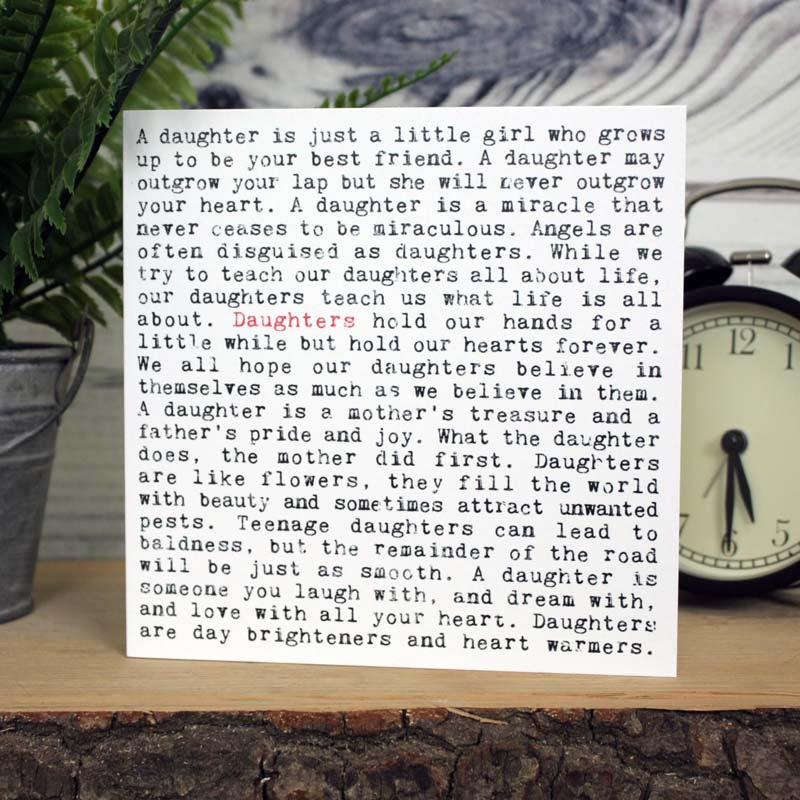 A daughter is just a little girl who grows
up to be your best friend. A daughter may
outgrow your lap but she will never outgrow
your heart. A daughter is a miracle that
never ceases to be miraculous. Angels are
often disguised as daughters. While we
try to teach our daughters all about life,
our daughters teach us what life is all
about. Daughters hold our hands for a
little while but hold our hearts forever.
We all hope our daughters believe in
themselves as much as we believe in them.
A daughter is a mother's treasure and a
father's pride and joy. What the daughter
does, the mother did first. Daughters
are like flowers, they fill the world
with beauty and sometimes attract unwanted
pests. Teenage daughters can lead to
baldness, but the remainder of the road
will be just as smooth. A daughter is
someone you laugh with, and dream with,
and love with all your heart. Daughters
are day brighteners and heart warmers.
11 12 1
7 6 5